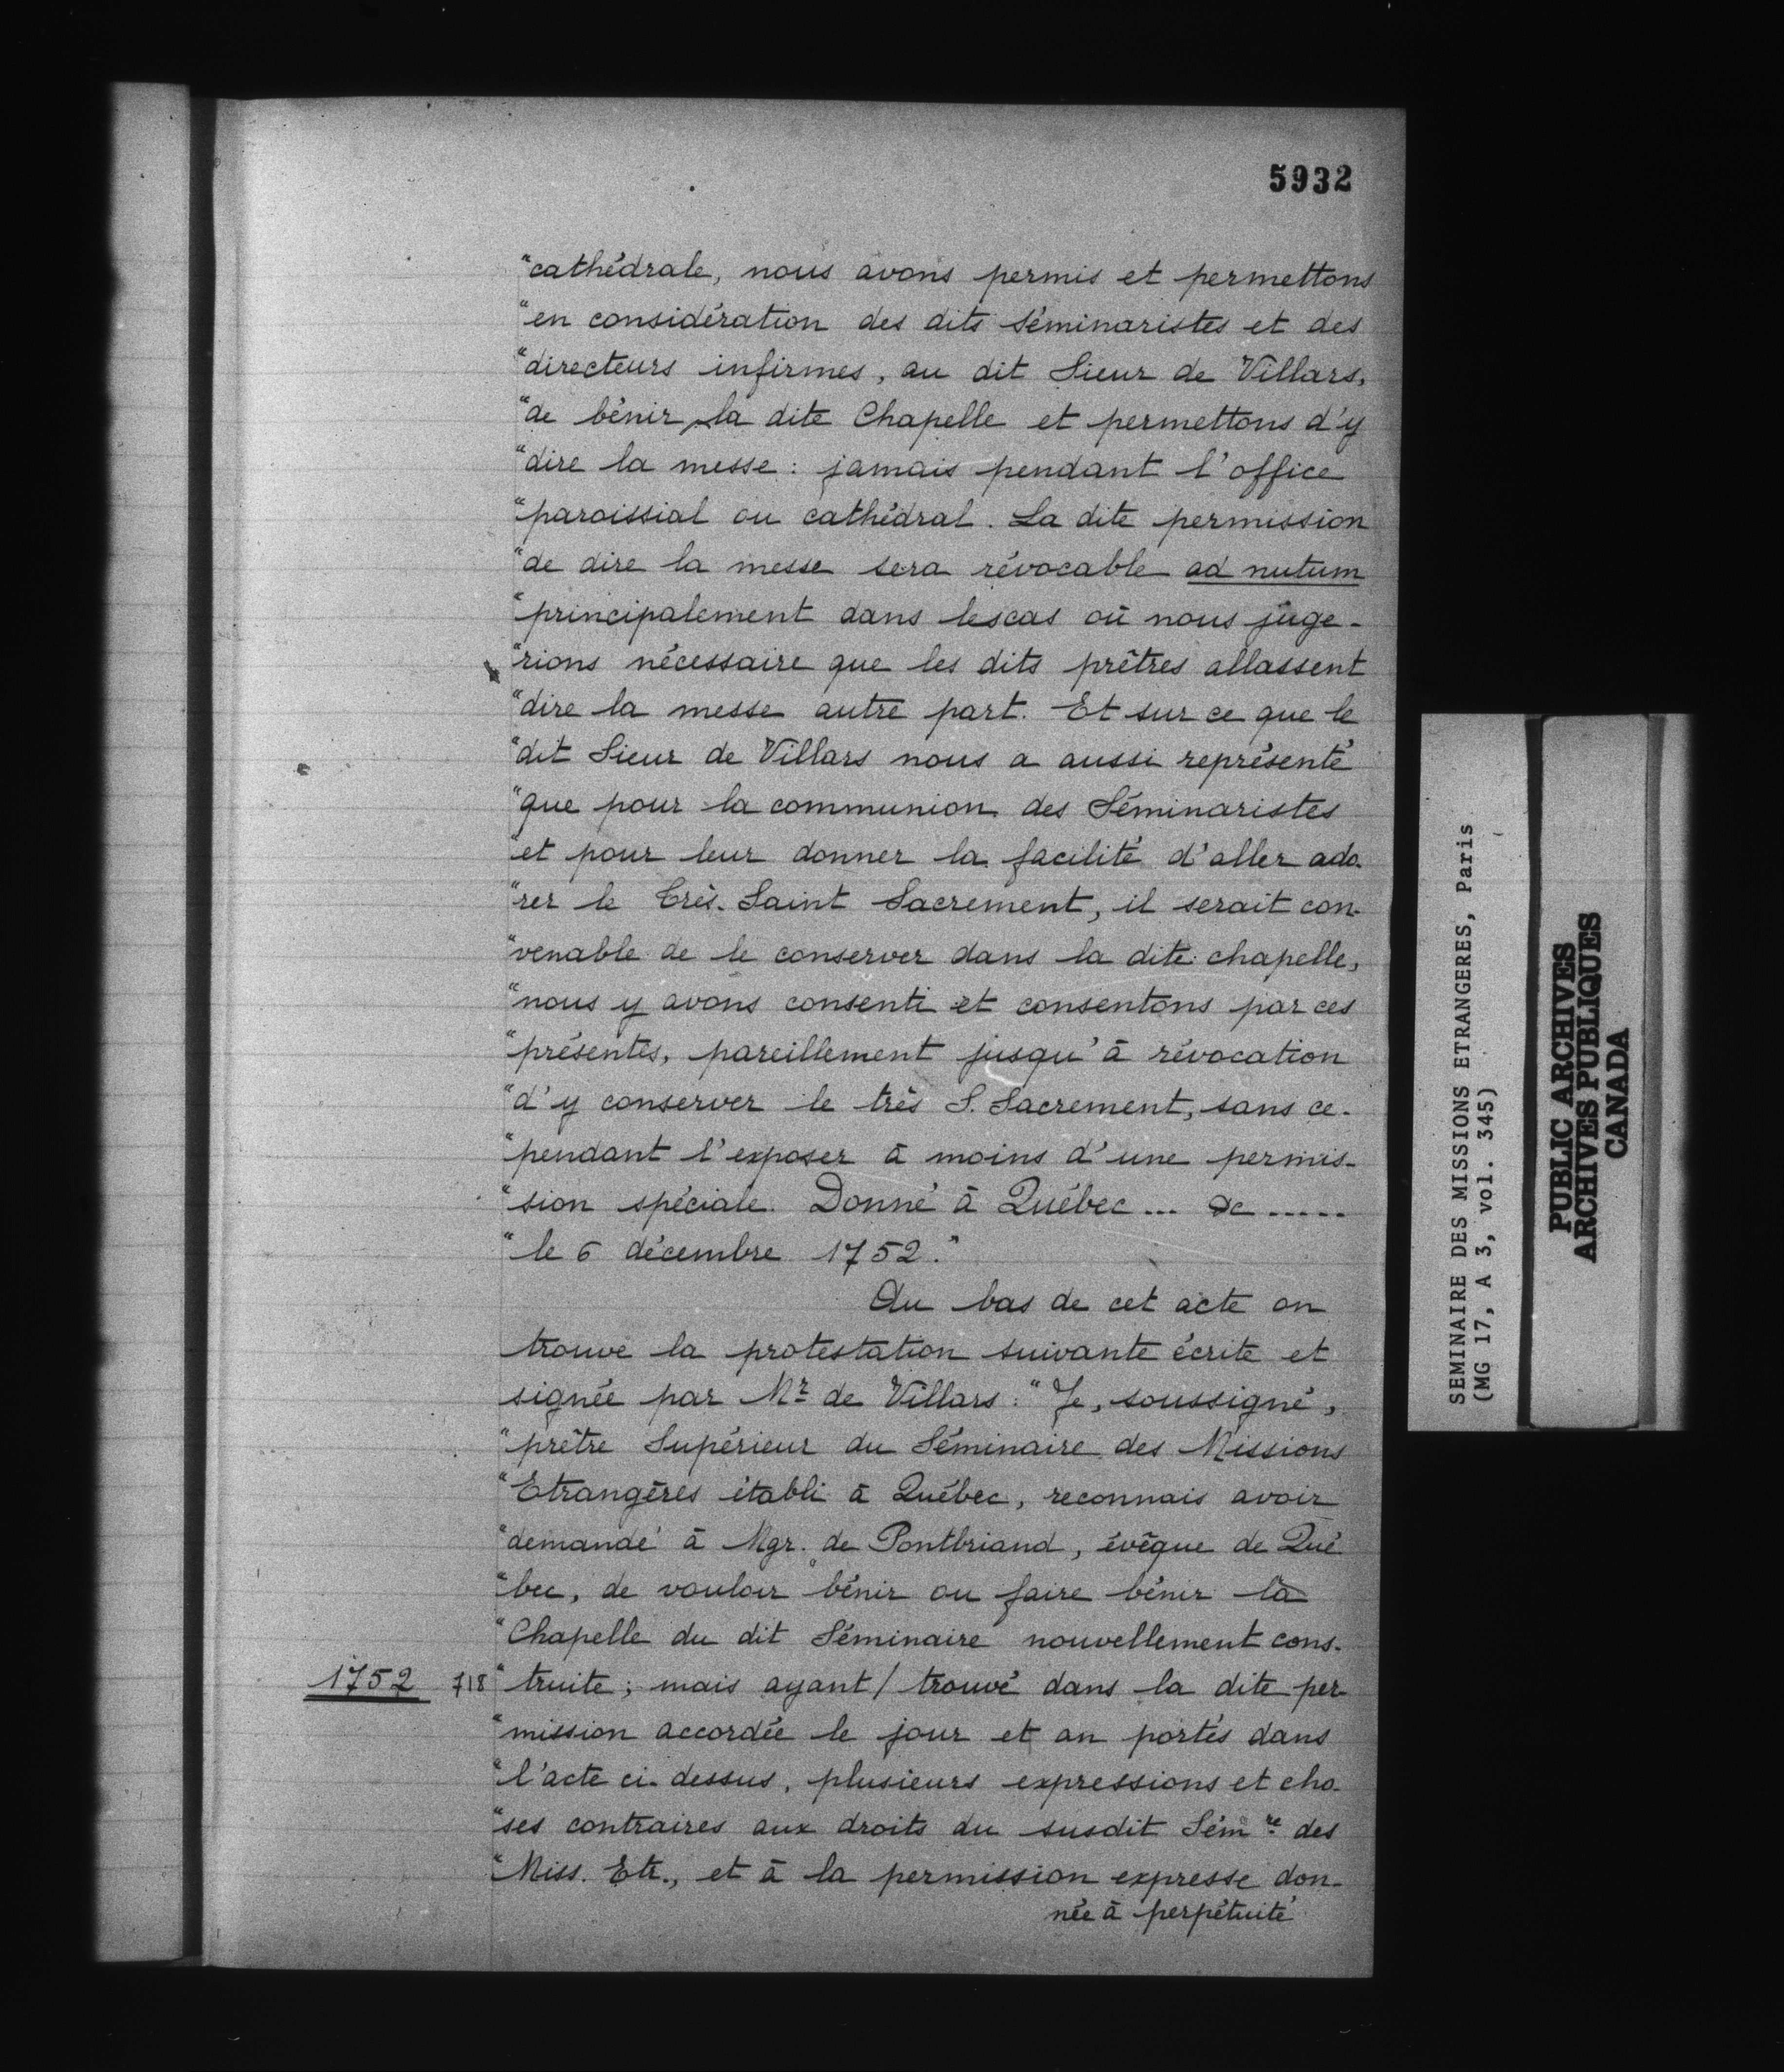 5932
"cathédrale, nous avons permis et permettons
"en considération des dits séminaristes et des
"directeurs infirmes, au dit Sieur de Villars,
"de bénir la dite Chapelle et permettons d'y
"dire la messe : jamais pendant l'office
"paroissial ou cathédral. La dite permission
"de dire la messe sera révocable ad nutum
"principalement dans les cas où nous juge-
"rions nécessaire que les dits prêtres allassent
"dire la messe autre part. Et sur ce que le
"dit Sieur de Villars nous a aussi représenté
"que pour la communion des Séminaristes
"et pour leur donner la facilité d'aller ado-
"rer le Très-Saint Sacrement, il serait con-
"venable de le conserver dans la dite chapelle,
"nous y avons consenti et consentons par ces
"présentes, pareillement jusqu'à révocation
"d'y conserver le très S. Sacrement, sans ce-
"pendant l'exposer à moins d'une permis-
"sion spéciale. Donné à Québec ... &c .....
"le 6 décembre 1752."
Au bas de cet acte on
trouve la protestation suivante écrite et
signée par Mr de Villars : "Je, soussigné,
"prêtre Supérieur du Séminaire des Missions
"Etrangères établi à Québec, reconnais avoir
"demandé à Mgr. de Pontbriand, évêque de Qué
"bec, de vouloir bénir ou faire bénir la
"Chapelle du dit Séminaire nouvellement cons-
1752 718 "truite ; mais ayant / trouvé dans la dite per-
"mission accordée le jour et an portés dans
"l'acte ci-dessus, plusieurs expressions et cho-
"ses contraires aux droits du susdit Sémre des
"Miss. Etr., et à la permission expresse don-
née à perpétuité
SEMINAIRE DES MISSIONS ETRANGERES, Paris
(MG 17, A 3, vol. 345)
PUBLIC ARCHIVES
ARCHIVES PUBLIQUES
CANADA